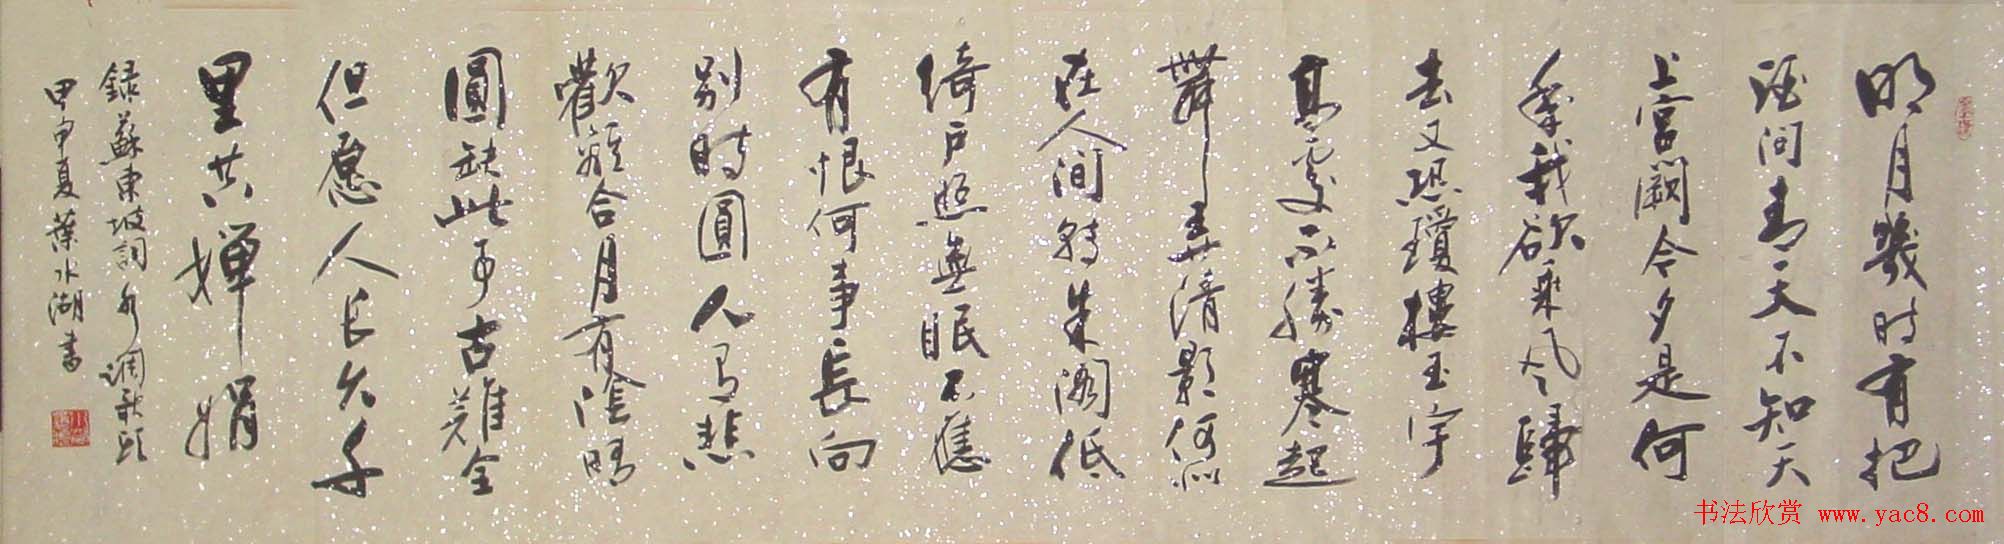 明月幾时有把
酒问青天不知天
上宫阙今夕是何
年我欲乘风归
去又恐瓊樓玉宇
高處不勝寒起
舞弄清影何似
在人间转朱阁低
绮户照無眠不應
有恨何事長向
别时圓人有悲
歡離合月有陰晴
圓缺此事古難全
但愿人长久千
里共婵娟
録蘇東坡詞水调歌头
甲申夏葉水湖書
书法欣赏 www.yac8.com